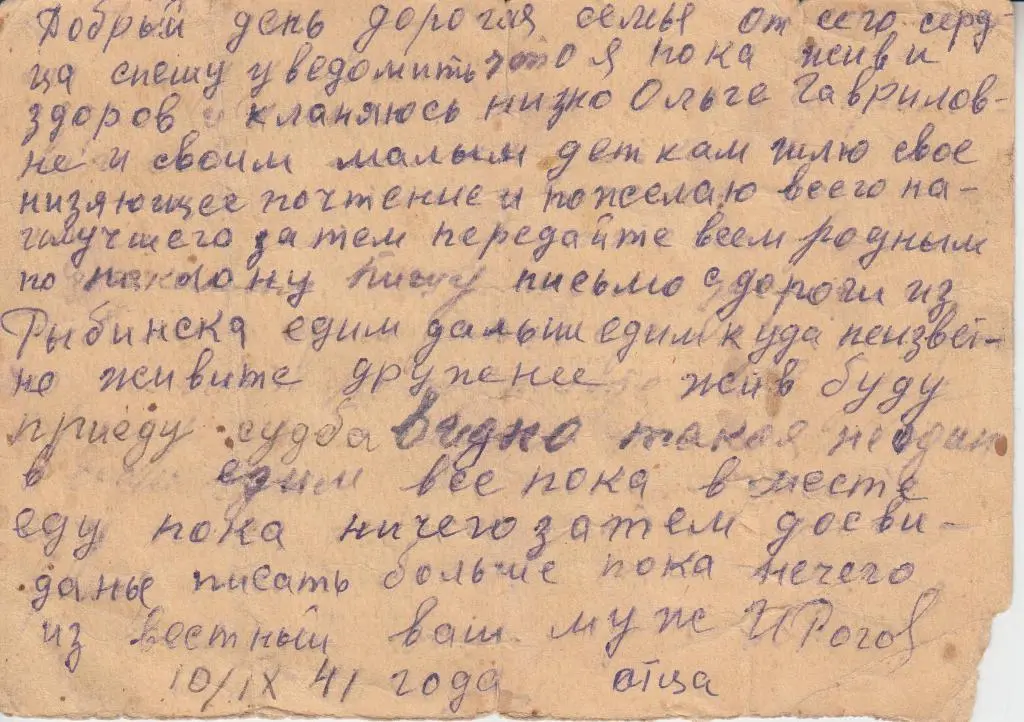 Добрый день дорогая семья от сего серд-
ца спешу уведомить что я пока жив и
здоров и кланяюсь низко Ольге Гаврилов-
не и своим малым деткам шлю свое
низяющее почтение и пожелаю всего на-
илучшего затем передайте всем родным
по поклону пишу письмо здороги из
Рыбинска едим дальши едим куда неизвест-
но живите дружнее жив буду
приеду судба видно такая неодин
в едим все пока вместе
еду пока ничего затем досви-
данье писать больше пока нечего
из вестный ваш муж И Рогов
10/IX 41 года отца